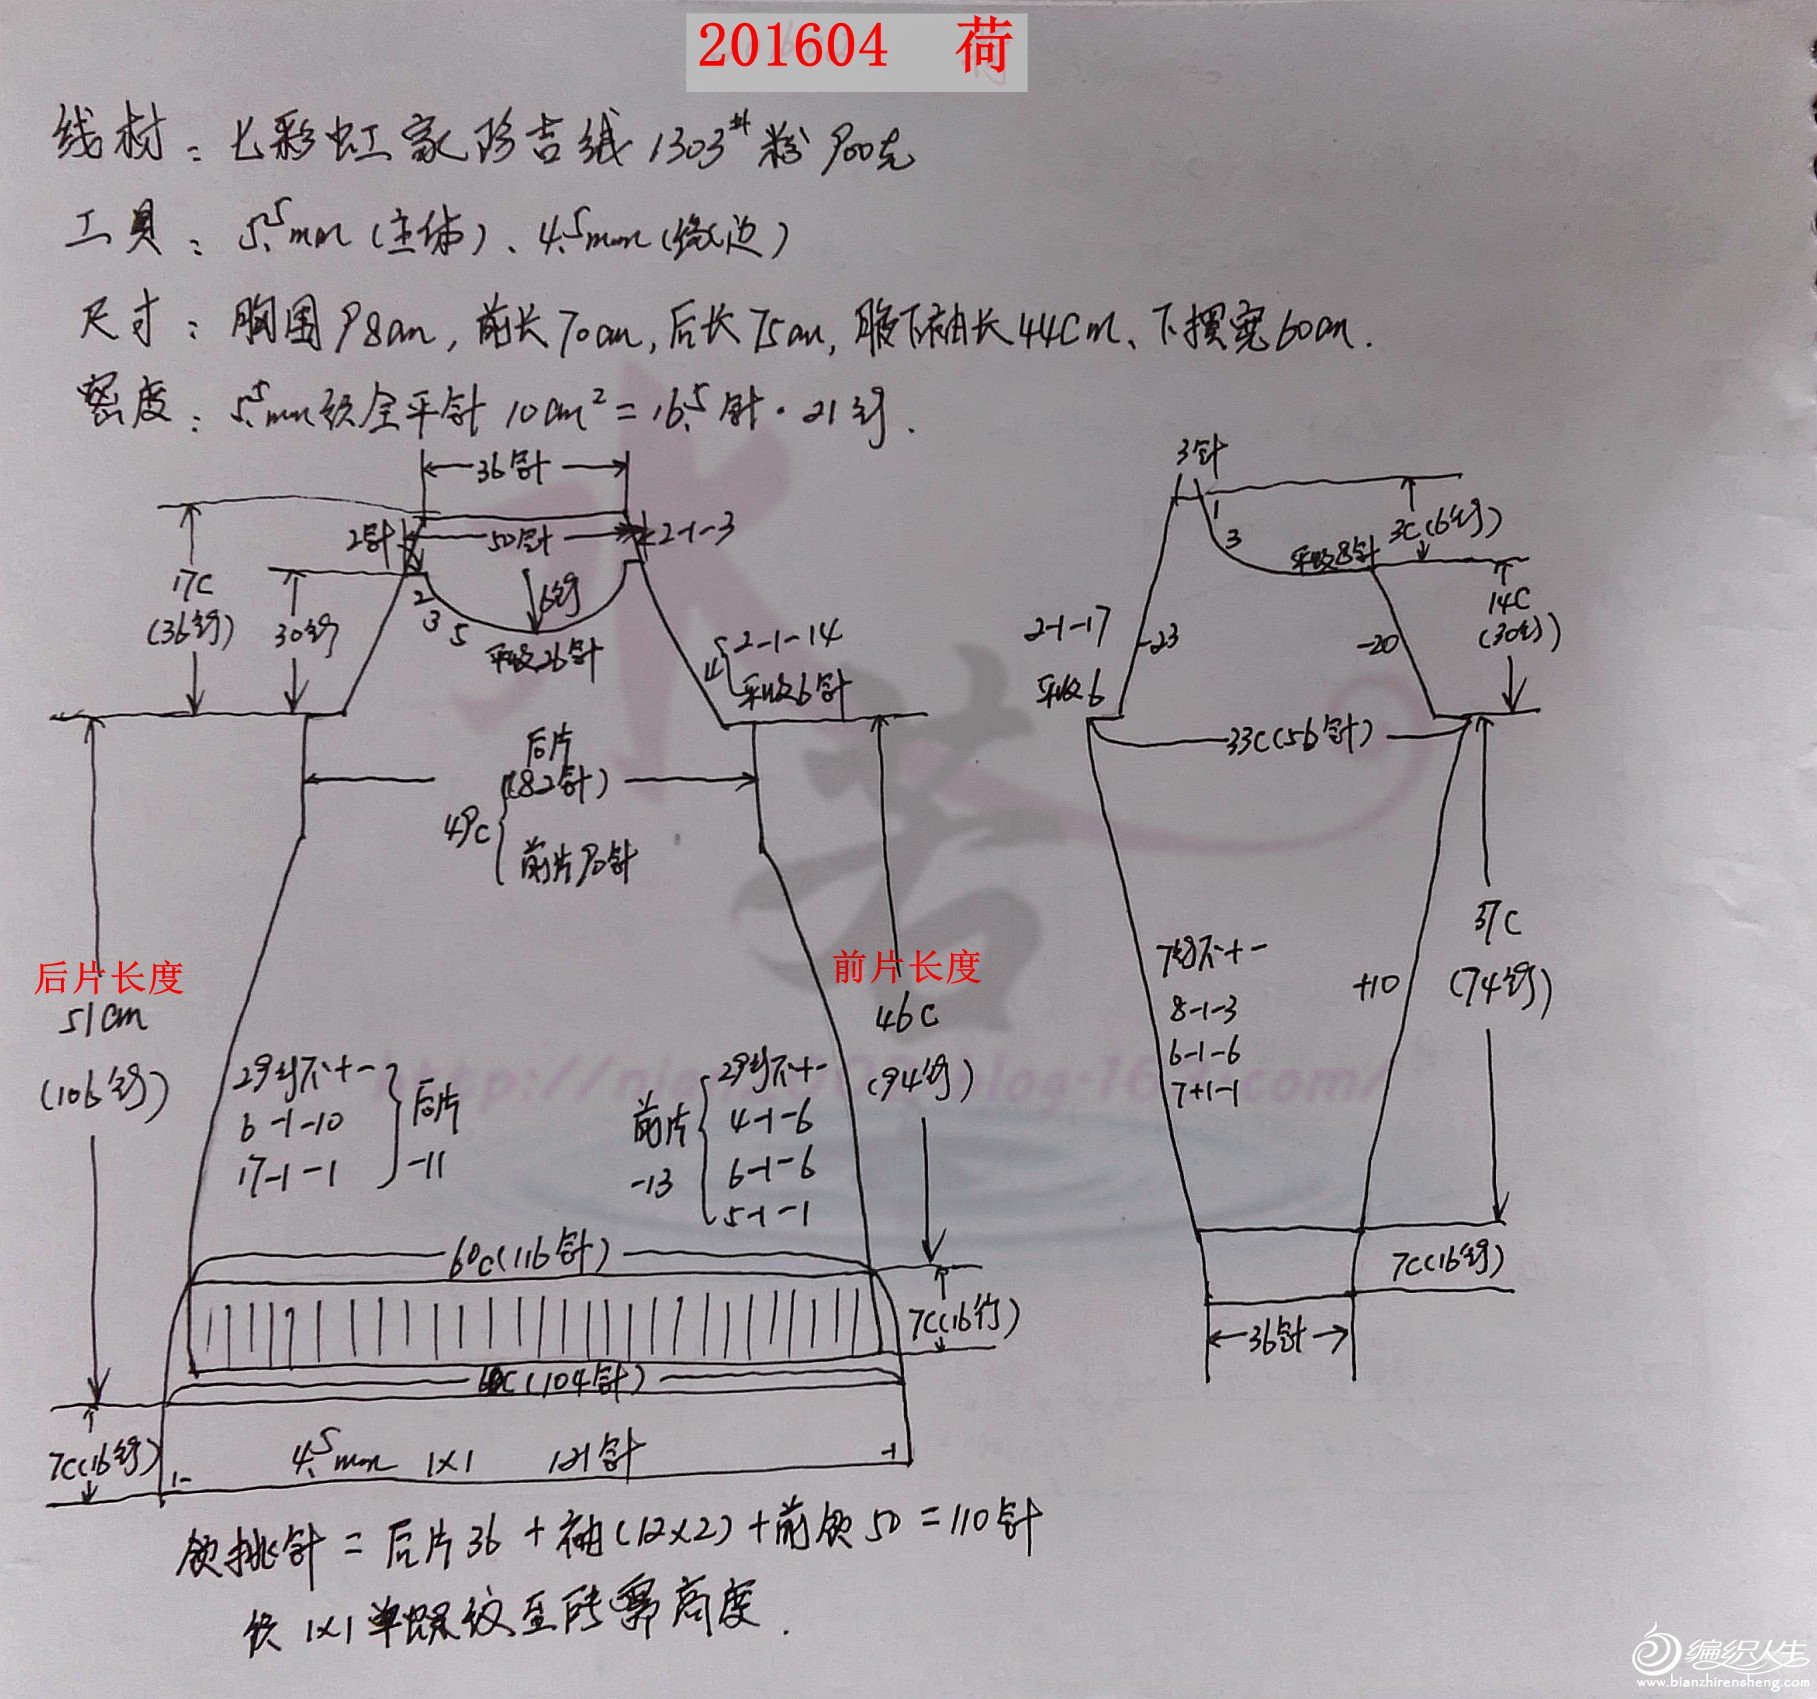 201604 荷
线材：七彩虹家珍吉绒1303#粉900克
工具：5.5mm(主体)、4.5mm(缘边)
尺寸：胸围98cm,前长70cm,后长75cm,腋下袖长44cm、下摆宽60cm.
密度：5.5mm织全平针10cm²=16.5针·21行.
36针
2针
50针
2-1-3
17C
(36行)
30行
2
3
5
6行
平收26针
2-1-14
平收6针
后片
(82针)
49C
前片90针
后片长度
51cm
(106行)
前片长度
46C
(94行)
29行不+-
6-1-10
17-1-1
后片
-11
前片
-13
29行不+-
4-1-6
6-1-6
5-1-1
60C(116针)
7C(16行)
60C(104针)
7C(16行)
1-
4.5mm 1×1 121针
-1
3针
1
3
平收8针
3C(6行)
14C
(30行)
2-1-17
平收6
-23
-20
33C(56针)
7行不+-
8-1-3
6-1-6
7+1-1
+10
37C
(74行)
7C(16行)
36针
领挑针=后片36+袖(12×2)+前领50=110针
织1×1单螺纹至所需高度.
若
编织人生
www.bianzhirensheng.com